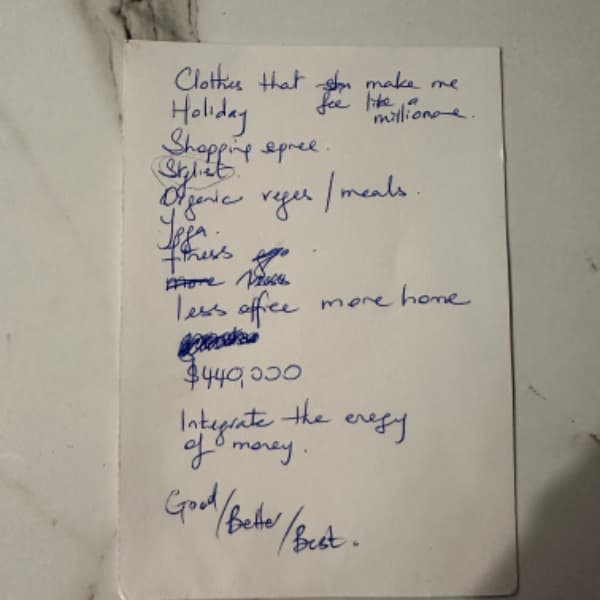 Clothes that make me
fee like a
millionare.
Holiday
Shopping spree.
Stylist.
Organic veges / meals.
Yoga.
fitness
more
less office more home
$440,000
Integrate the energy
of money.
Good / Better / Best.